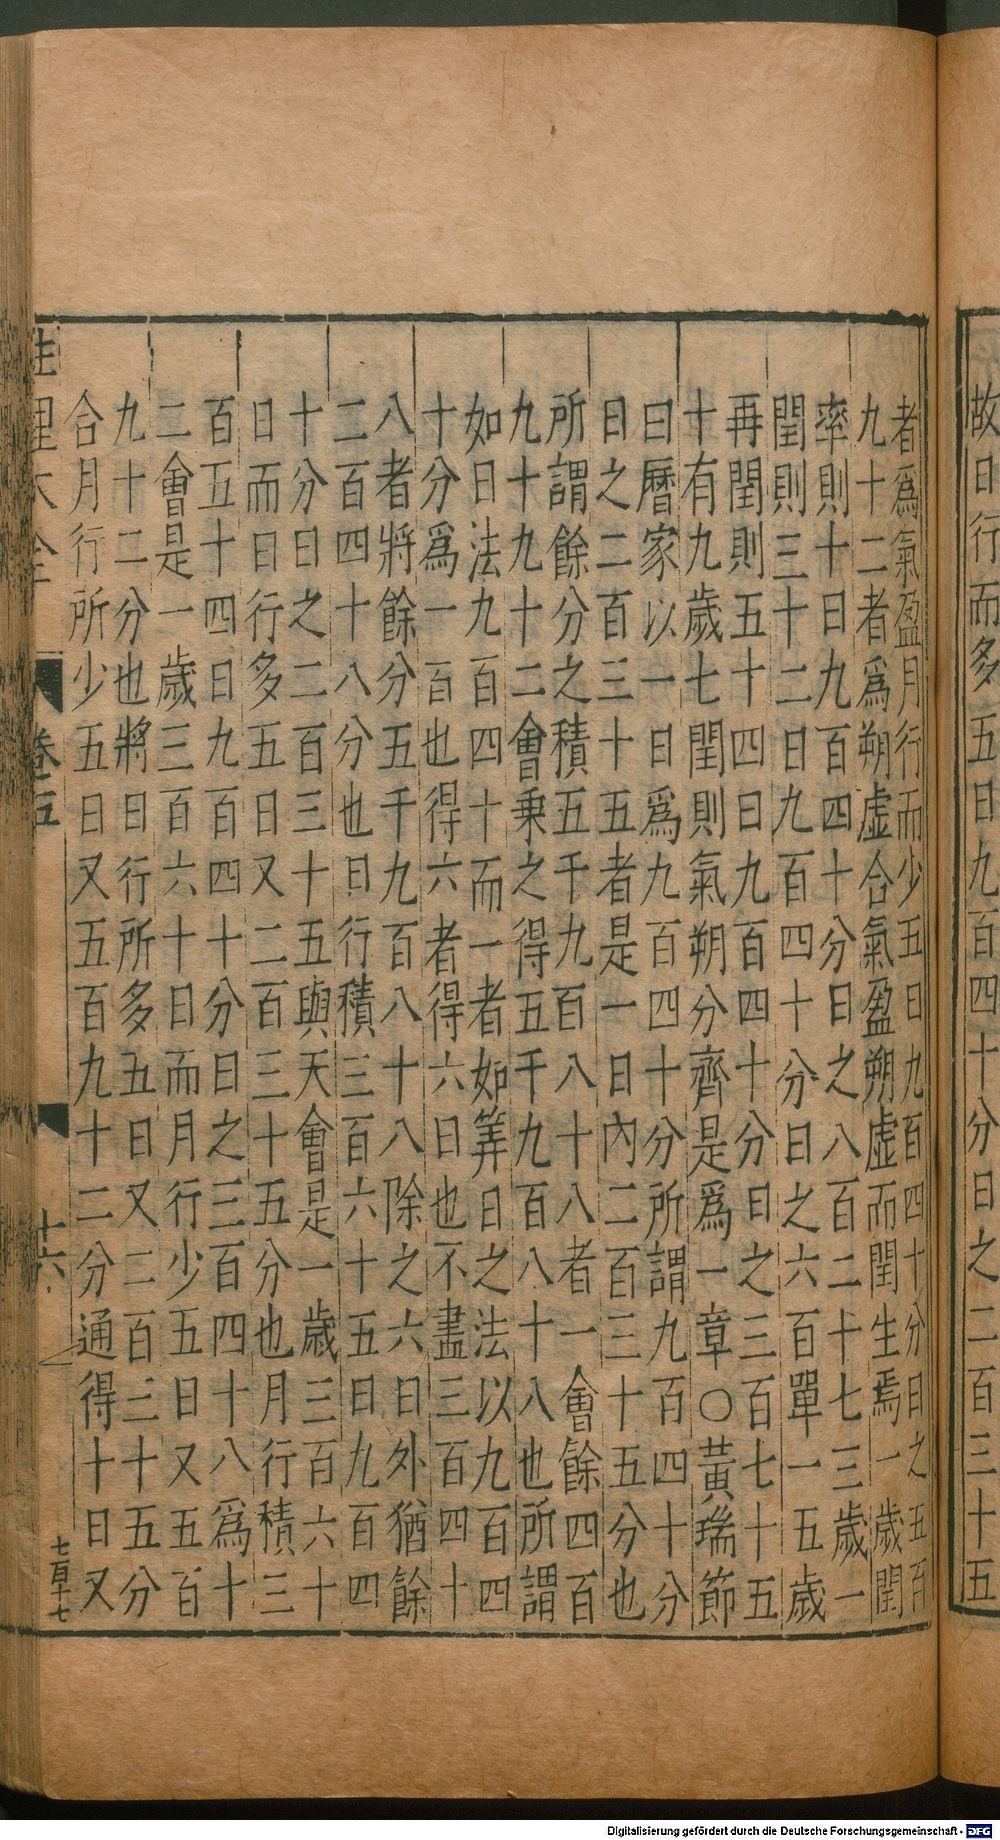 故日行而多五日九百四十分日之二百三十五
者爲氣盈月行而少五日九百四十分日之五百
九十二者爲朔虛合氣盈朔虛而閏生焉一歲閏
率則十日九百四十分日之八百二十七三歲一
閏則三十二日九百四十分日之六百單一五歲
再閏則五十四日九百四十分日之三百七十五
十有九歲七閏則氣朔分齊是爲一章○黃瑞節
曰曆家以一日爲九百四十分所謂九百四十分
日之二百三十五者是一日內二百三十五分也
所謂餘分之積五千九百八十八者一會餘四百
九十九十二會乗之得五千九百八十八也所謂
如日法九百四十而一者如筭日之法以九百四
十分爲一百也得六者得六日也不盡三百四十
八者將餘分五千九百八十八除之六日外猶餘
二百四十八分也日行積三百六十五日九百四
十分日之二百三十五與天會是一歲三百六十
日而日行多五日又二百三十五分也月行積三
百五十四日九百四十分日之三百四十八爲十
二會是一歲三百六十日而月行少五日又五百
九十二分也將日行所多五日又二百三十五分
合月行所少五日又五百九十二分通得十日又
性理大全 卷五 十六 七百十七
Digitalisierung gefördert durch die Deutsche Forschungsgemeinschaft - DFG